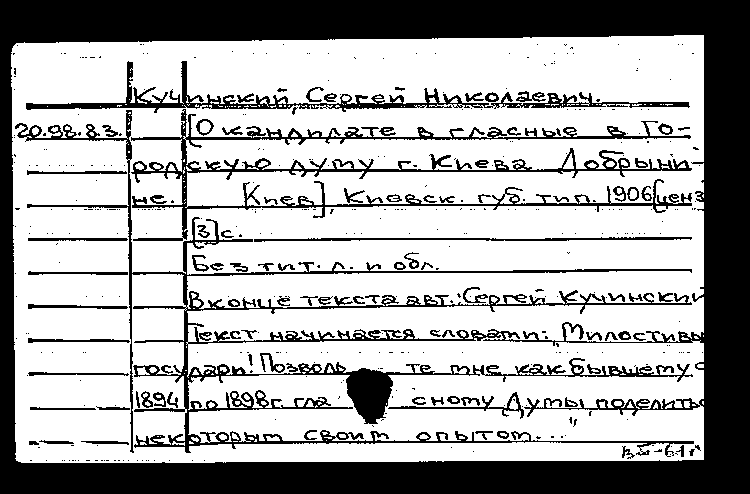 Кучинский, Сергей Николаевич.
20.98.8.3. [О кандидате в гласные в Го-
родскую думу г. Киева Добрыни-
не. [Киев], Киевск. губ. тип., 1906 [ценз
[3] с.
Без тит. л. и обл.
В конце текста авт.: Сергей Кучинский
Текст начинается словами: „Милостивы
государи! Позволь те мне, как бывшему с
1894 по 1898 г. гла сному Думы, поделитьс
некоторым своим опытом..."